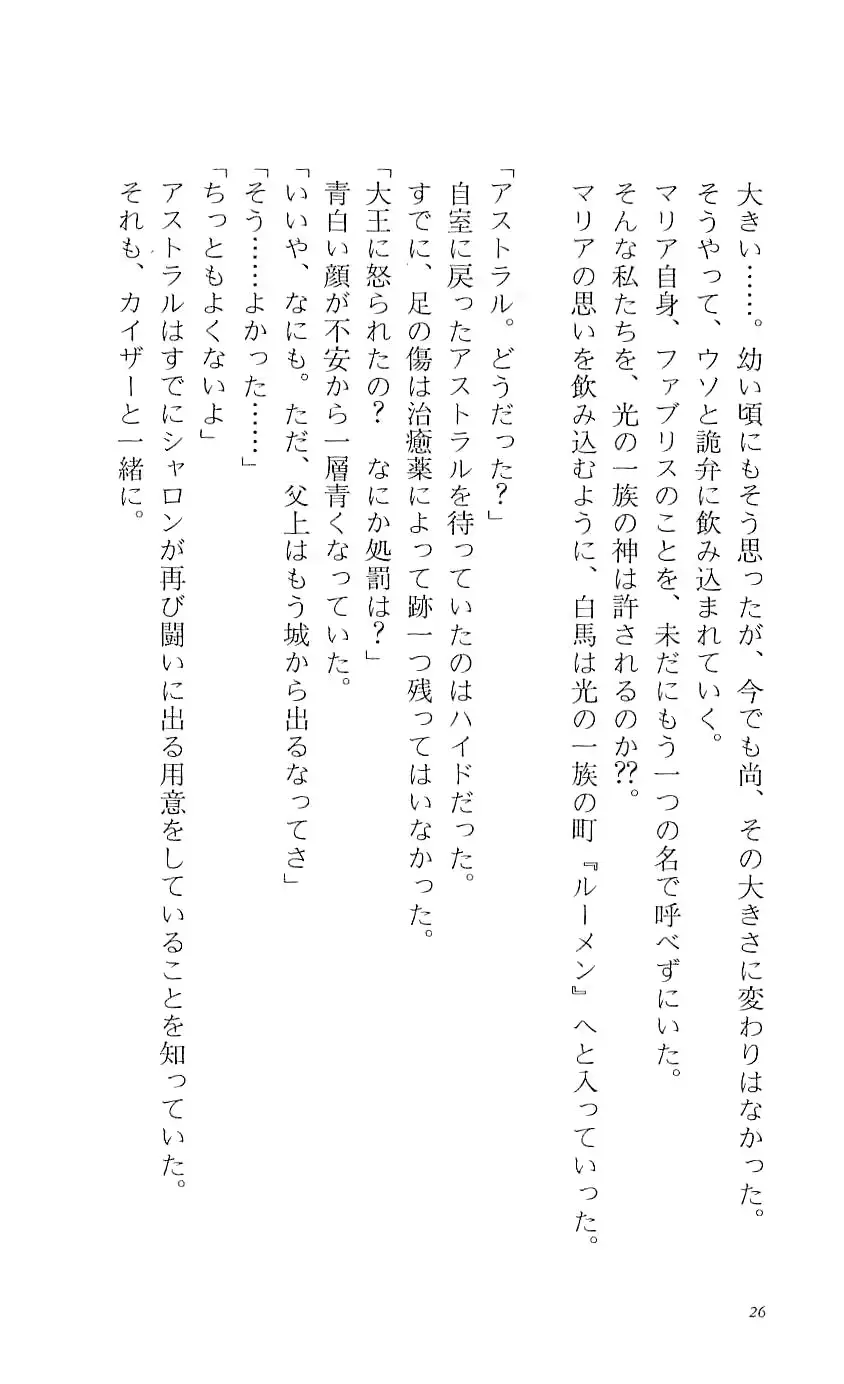 大きい……。幼い頃にもそう思ったが、今でも尚、その大きさに変わりはなかった。
そうやって、ウソと詭弁に飲み込まれていく。
マリア自身、ファブリスのことを、未だにもう一つの名で呼べずにいた。
そんな私たちを、光の一族の神は許されるのか⁇。
マリアの思いを飲み込むように、白馬は光の一族の町『ルーメン』へと入っていった。
「アストラル。どうだった？」
自室に戻ったアストラルを待っていたのはハイドだった。
すでに、足の傷は治癒薬によって跡一つ残ってはいなかった。
「大王に怒られたの？　なにか処罰は？」
青白い顔が不安から一層青くなっていた。
「いいや、なにも。ただ、父上はもう城から出るなってさ」
「そう……よかった……」
「ちっともよくないよ」
アストラルはすでにシャロンが再び闘いに出る用意をしていることを知っていた。
それも、カイザーと一緒に。
26